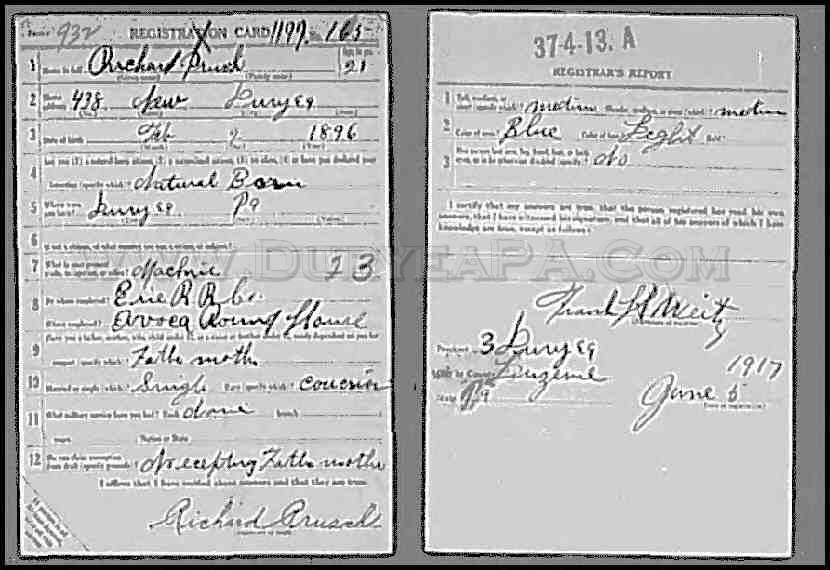 932 REGISTRATION CARD 1199 No. 165
1 Name in full Richard 21
(Given name) (Family name)
2 Home address 438 New Duryea
3 Date of birth Feb 2 1896
Are you (1) a natural-born citizen, (2) a naturalized citizen, (3) an alien, (4) or have you declared your
4 intention (specify which)? Natural Born
5 Where were you born? Duryea Pa
6 If not a citizen, of what country are you a citizen or subject?
7 What is your present trade, occupation, or office? 23
8 By whom employed? Erie R R Co
Where employed? Avoca Round House
9 support (specify which)? Fathe mothe
10 Married or single (which)? Single Race (specify which)?
11 What military service have you had? Rank branch
years Nation or State
12 Do you claim exemption from draft (specify grounds)? Fathe mothe
I affirm that I have verified above answers and that they are true.
Richard Prusch
37-4-13. A
REGISTRAR'S REPORT
1 medium Slender, medium, or stout (which)? medium
2 Color of eyes Blue Color of hair Light Bald
3 Has person lost arm, leg, hand, foot, or both eyes, or is he otherwise disabled (specify)? No
I certify that my answers are true, that the person registered has read his own
answers, that I have witnessed his signature, and that all of his answers of which I have
knowledge are true, except as follows:
WWW.DURYEAPA.COM
Frank
Precinct 3 Duryea
City or County Luzerne 1917
State Pa June 5